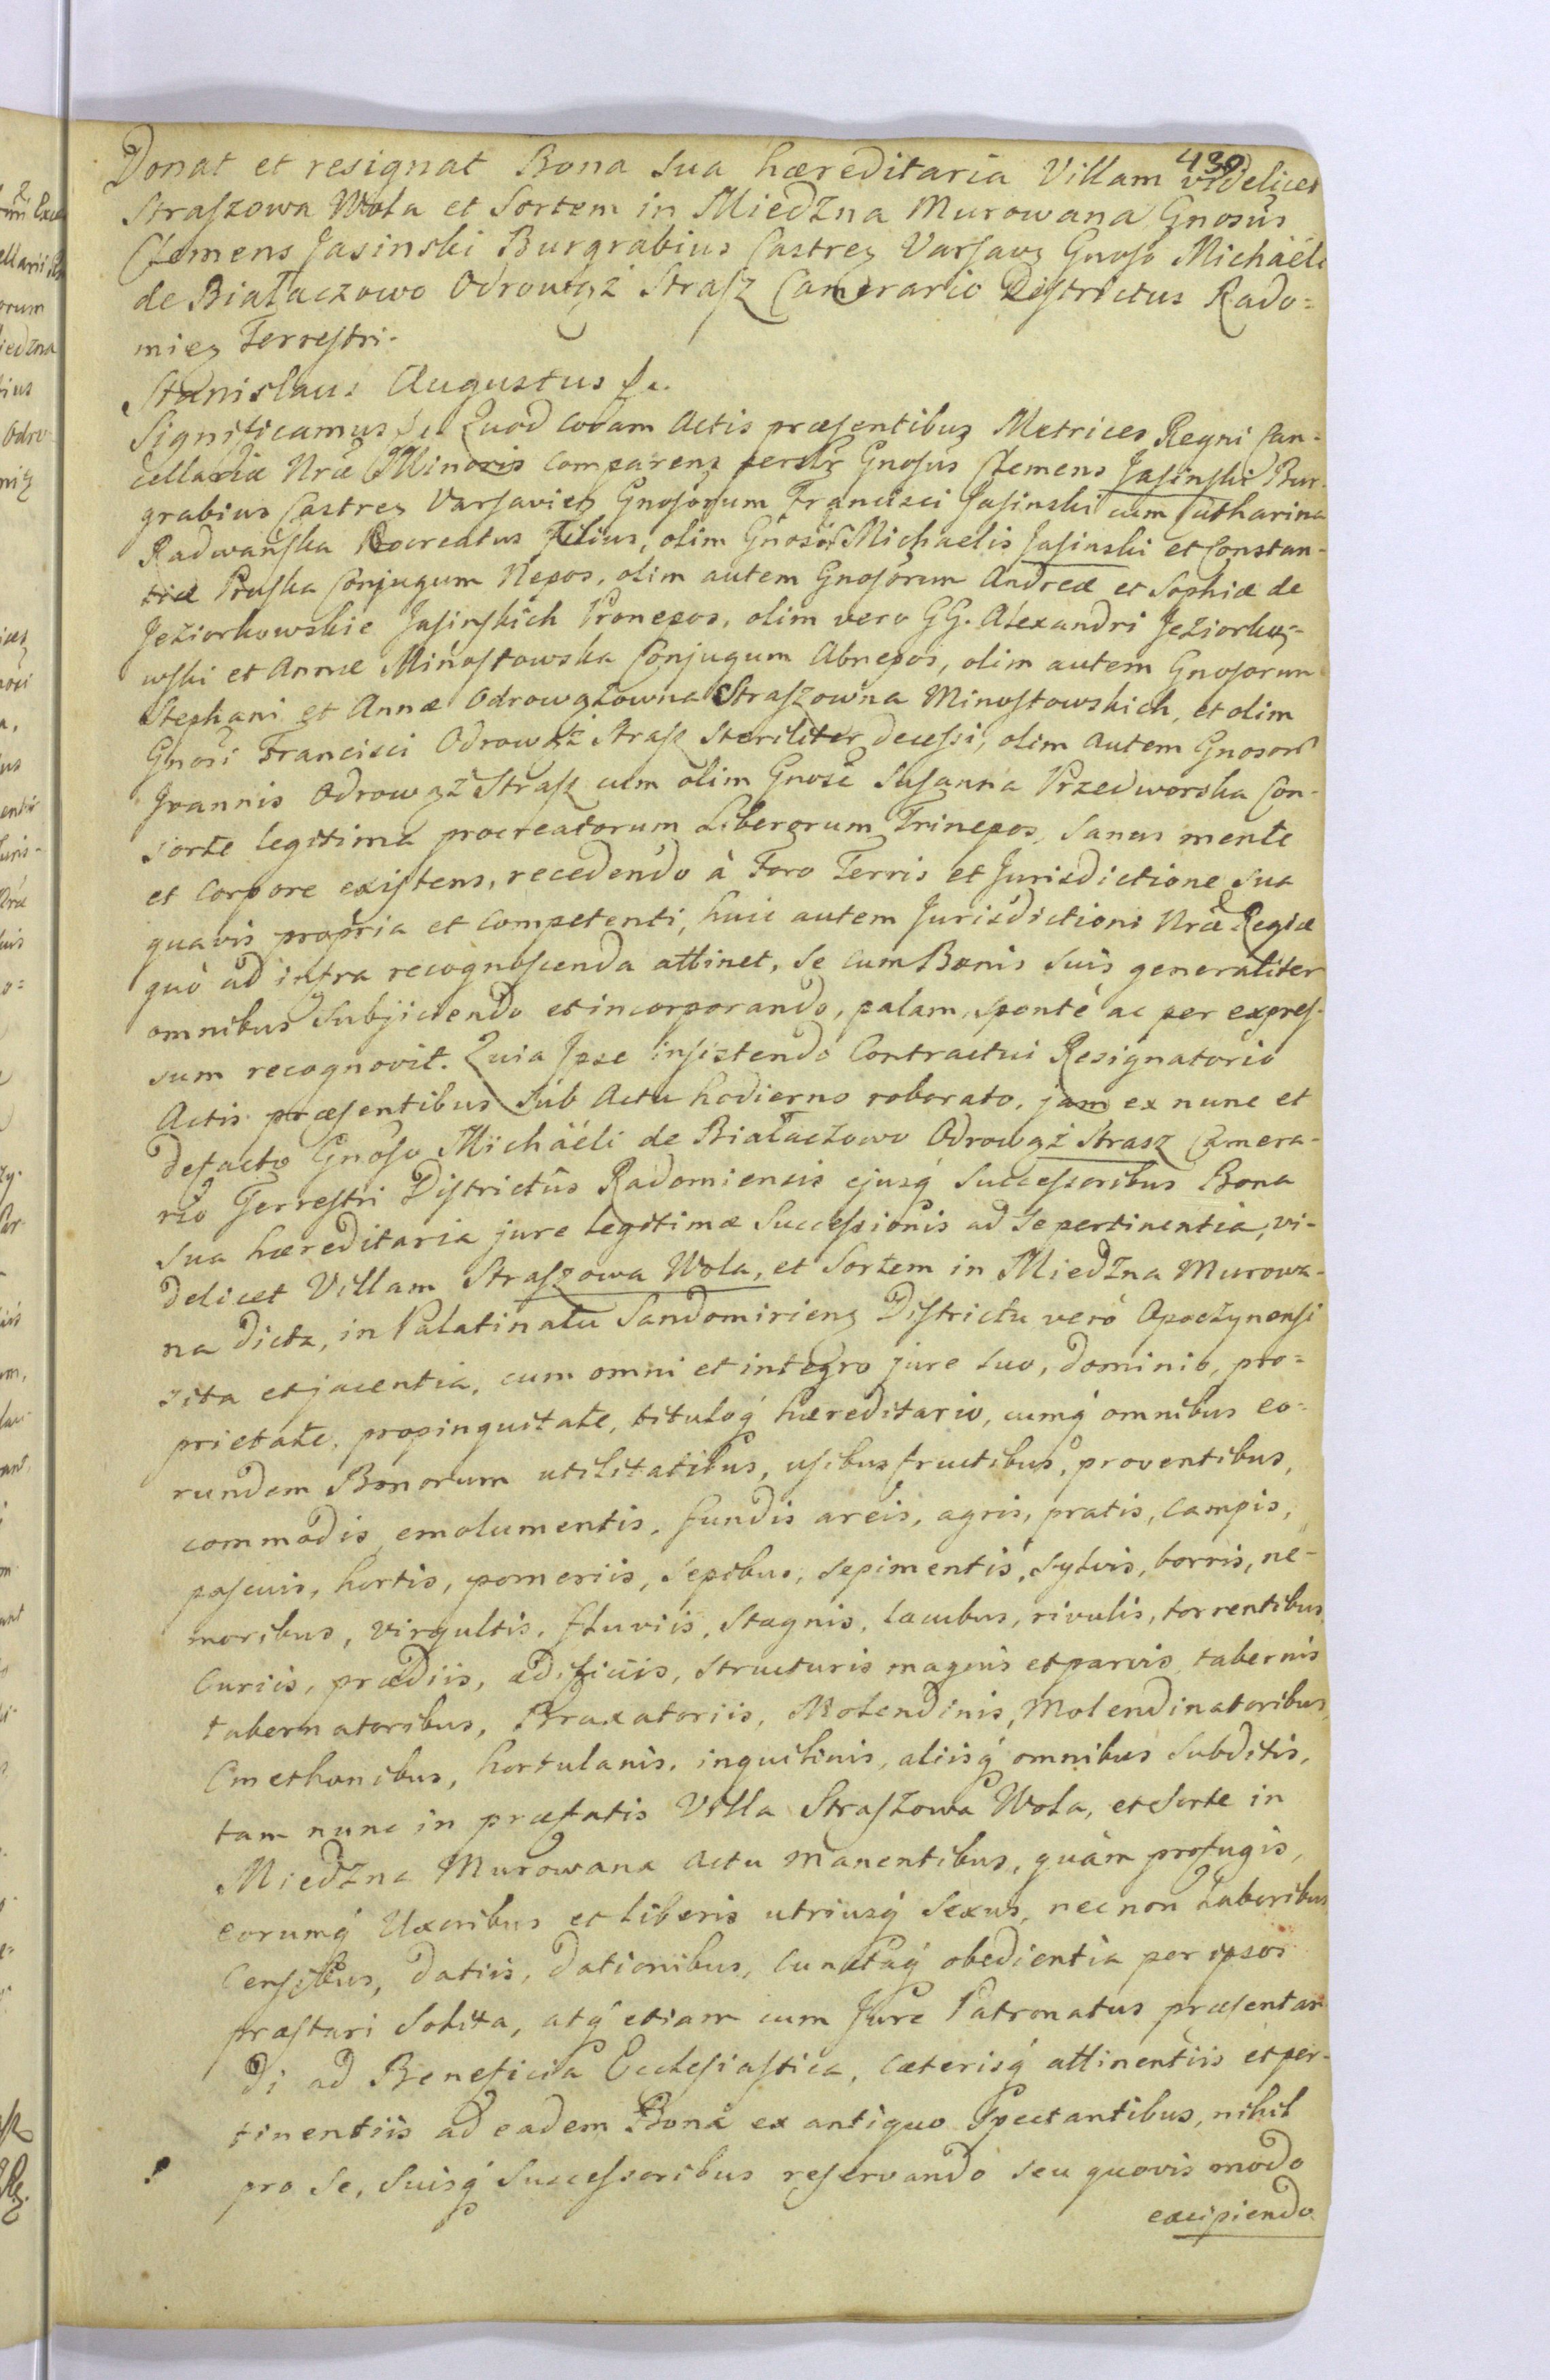 430
Donat et resignat Bona sua hæreditaria Villam videlicet
Straszowa Wola et Sortem in Miedzna Murowana Gnosus
Clemens Jasinski Burgrabius Castrez Varsavz Gnoso Michäéli
de Białaczowo Odrowąż Strasz Camerario Districtus Rado=
miez Terrestri.
Stanislaus Augustus &c.
Significamus &c. Quod coram Actis præsentibus Metrices Regni Can=
cellariæ Nræ Minoris comparens persłr Gnosus Clemens Jasinski Bur-
grabius Castrez Varsaviez Gnosorum Francisci Jasinski cum Catharina
Radwańska Procreatus Filius, olim Gnosor Michaelis Jasinski et Constan-
tiæ Pruska Conjugum Nepos, olim autem Gnosorum Andreæ et Sophiæ de
Jeziorkowskie Jasinskich Pronepos, olim vero GG. Alexandri Jeziorko=
wski et Annæ Minostowska Conjugum Abnepos, olim autem Gnosorum
Stephani et Annæ Odrowążowna Straszowna Minostowskich, et olim
Gnosi Francisci Odrowąż Strasz steriliter decessi, olim autem Gnosor
Joannis Odrowąż Strasz cum olim Gnose Susanna Przedworska Con-
sorte legitima procreatorum Liberorum Trinepos, Sanus mente
et corpore existens, recedendo à Foro Terris et Jurisdictione sua
quavis propria et competenti, huic autem Jurisdictioni Nræ Regiæ
quò ad infra recognoscenda attinet, se cum Bonis suis generaliter
omnibus subjiciendo et incorporando, palam, sponte ac per expres-
sum recognovit. Quia Ipse insistendo Contractui Resignatorio
Actis præsentibus sub Actu hodierno roborato, jam ex nunc et
defacto Gnoso Michäéli de Białaczowo Odrowąż Strasz Camera-
rio Terrestri Districtûs Radomiensis ejusq́ Successoribus Bona
sua hæreditaria jure legitimæ Successionis ad se pertinentia, vi-
delicet Villam Straszowa Wola, et Sortem in Miedzna Murowa-
na dicta, in Palatinatu Sandomirienz Districtu verò Opoczynensi
sita et jacentia, cum omni et integro jure suo, dominio, pro=
prietate, propinquitate, tituloq́ hæreditario, cumq́ omnibus eo=
rundem Bonorum utilitatibus, usibus fructibus, proventibus,
commodis, emolumentis, fundis areis, agris, pratis, campis,
pascuis, hortis, pomeriis, sepibus, sepimentis, sylvis, borris, ne-
moribus, virgultis, fluviis, stagnis, lacubus, rivulis, torrentibus,
Curiis, prædiis, ædificiis, structuris magnis et parvis, tabernis
tabernatoribus, Braxatoriis, Molendinis, Molendinatoribus,
Cmethonibus, hortulanis, inquilinis, aliisq́ omnibus subditis,
tam nunc in præfatis Villa Straszowa Wola, et Sorte in
Miedzna Murowana actu manentibus, quàm profugis,
eorumq́ Uxoribus et liberis utriusq́ sexus, nec non laboribus
Censibus, datiis, dationibus, cunctaq́ obedientia per ipsos
præstari solita, atq́ etiam cum Jure Patronatus præsentan
di ad Beneficia Ecclesiastica, cæterisq́ attinentiis et per-
tinentiis ad eadem Bona ex antiquo spectantibus, nihil
pro se, suisq́ Successoribus reservando seu quovis modo
excipiendo